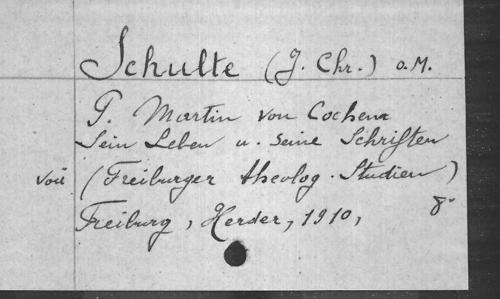 Schulte (J. Chr.) o.M.
P. Martin von Cochem
Sein Leben u. seine Schriften
voir (Freiburger theolog. Studien)
Freiburg, Herder, 1910, 8°